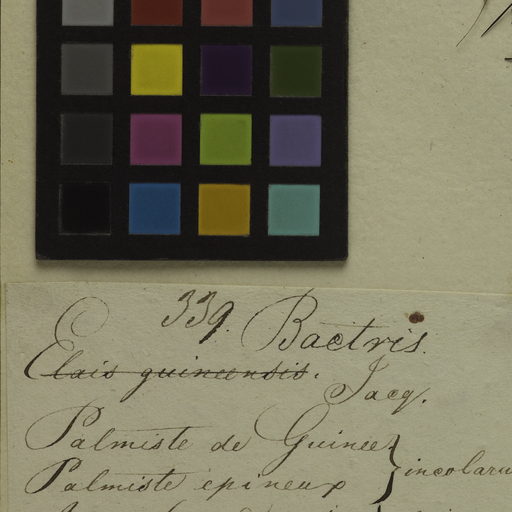 339. Bactris.
Elais guineensis.
Jacq.
Palmiste de Guinee
Palmiste épineux } incolaru